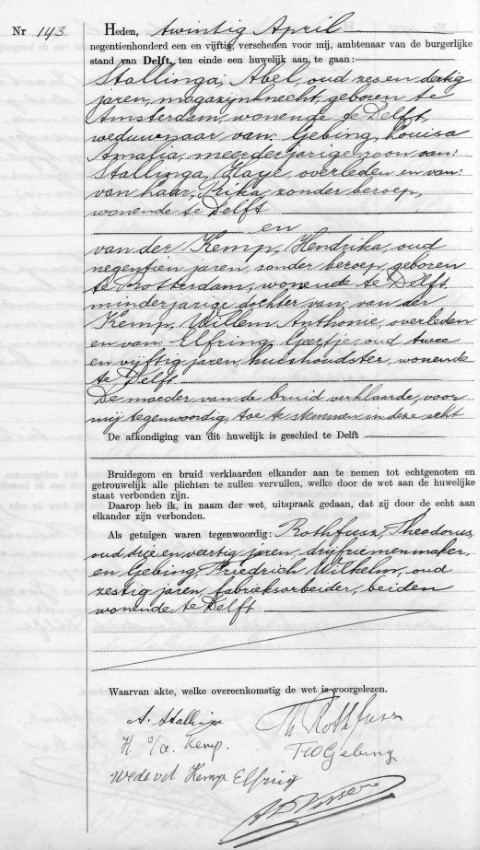 Nr 143 Heden, twintig April
negentienhonderd een en vijftig, verschenen voor mij, ambtenaar van de burgerlijke
stand van Delft, ten einde een huwelijk aan te gaan:
Stallinga, Abel, oud zes en dertig
jaren, magazijnknecht, geboren te
Amsterdam, wonende te Delft,
weduwnaar van Gebing, Louisa
Amalia, meerderjarige zoon van:
Stallinga, Klaye, overleden en van:
van Haar, Rika, zonder beroep,
wonende te Delft
en
van der Kemp, Hendrika, oud
negentien jaren, zonder beroep, geboren
te Rotterdam, wonende te Delft,
minderjarige dochter van van der
Kemp, Willem Anthonie, overleden
en van Elfring, Geertje, oud twee
en vijftig jaren, huishoudster, wonende
te Delft
De moeder van de bruid verklaarde, voor
mij tegenwoordig, toe te stemmen in deze echt
De afkondiging van dit huwelijk is geschied te Delft
Bruidegom en bruid verklaarden elkander aan te nemen tot echtgenoten en
getrouwelijk alle plichten te zullen vervullen, welke door de wet aan de huwelijke
staat verbonden zijn.
Daarop heb ik, in naam der wet, uitspraak gedaan, dat zij door de echt aan
elkander zijn verbonden.
Als getuigen waren tegenwoordig: Rothfusz, Theodorus,
oud drie en veertig jaren, drijfriemenmaker,
en Gebing, Friedrich Wilhelm, oud
zestig jaren, fabrieksarbeider, beiden
wonende te Delft
Waarvan akte, welke overeenkomstig de wet is voorgelezen.
A. Stallinga Th Rothfusz
H. v/d. Kemp. FW Gebing
Wed v d Kemp Elfring